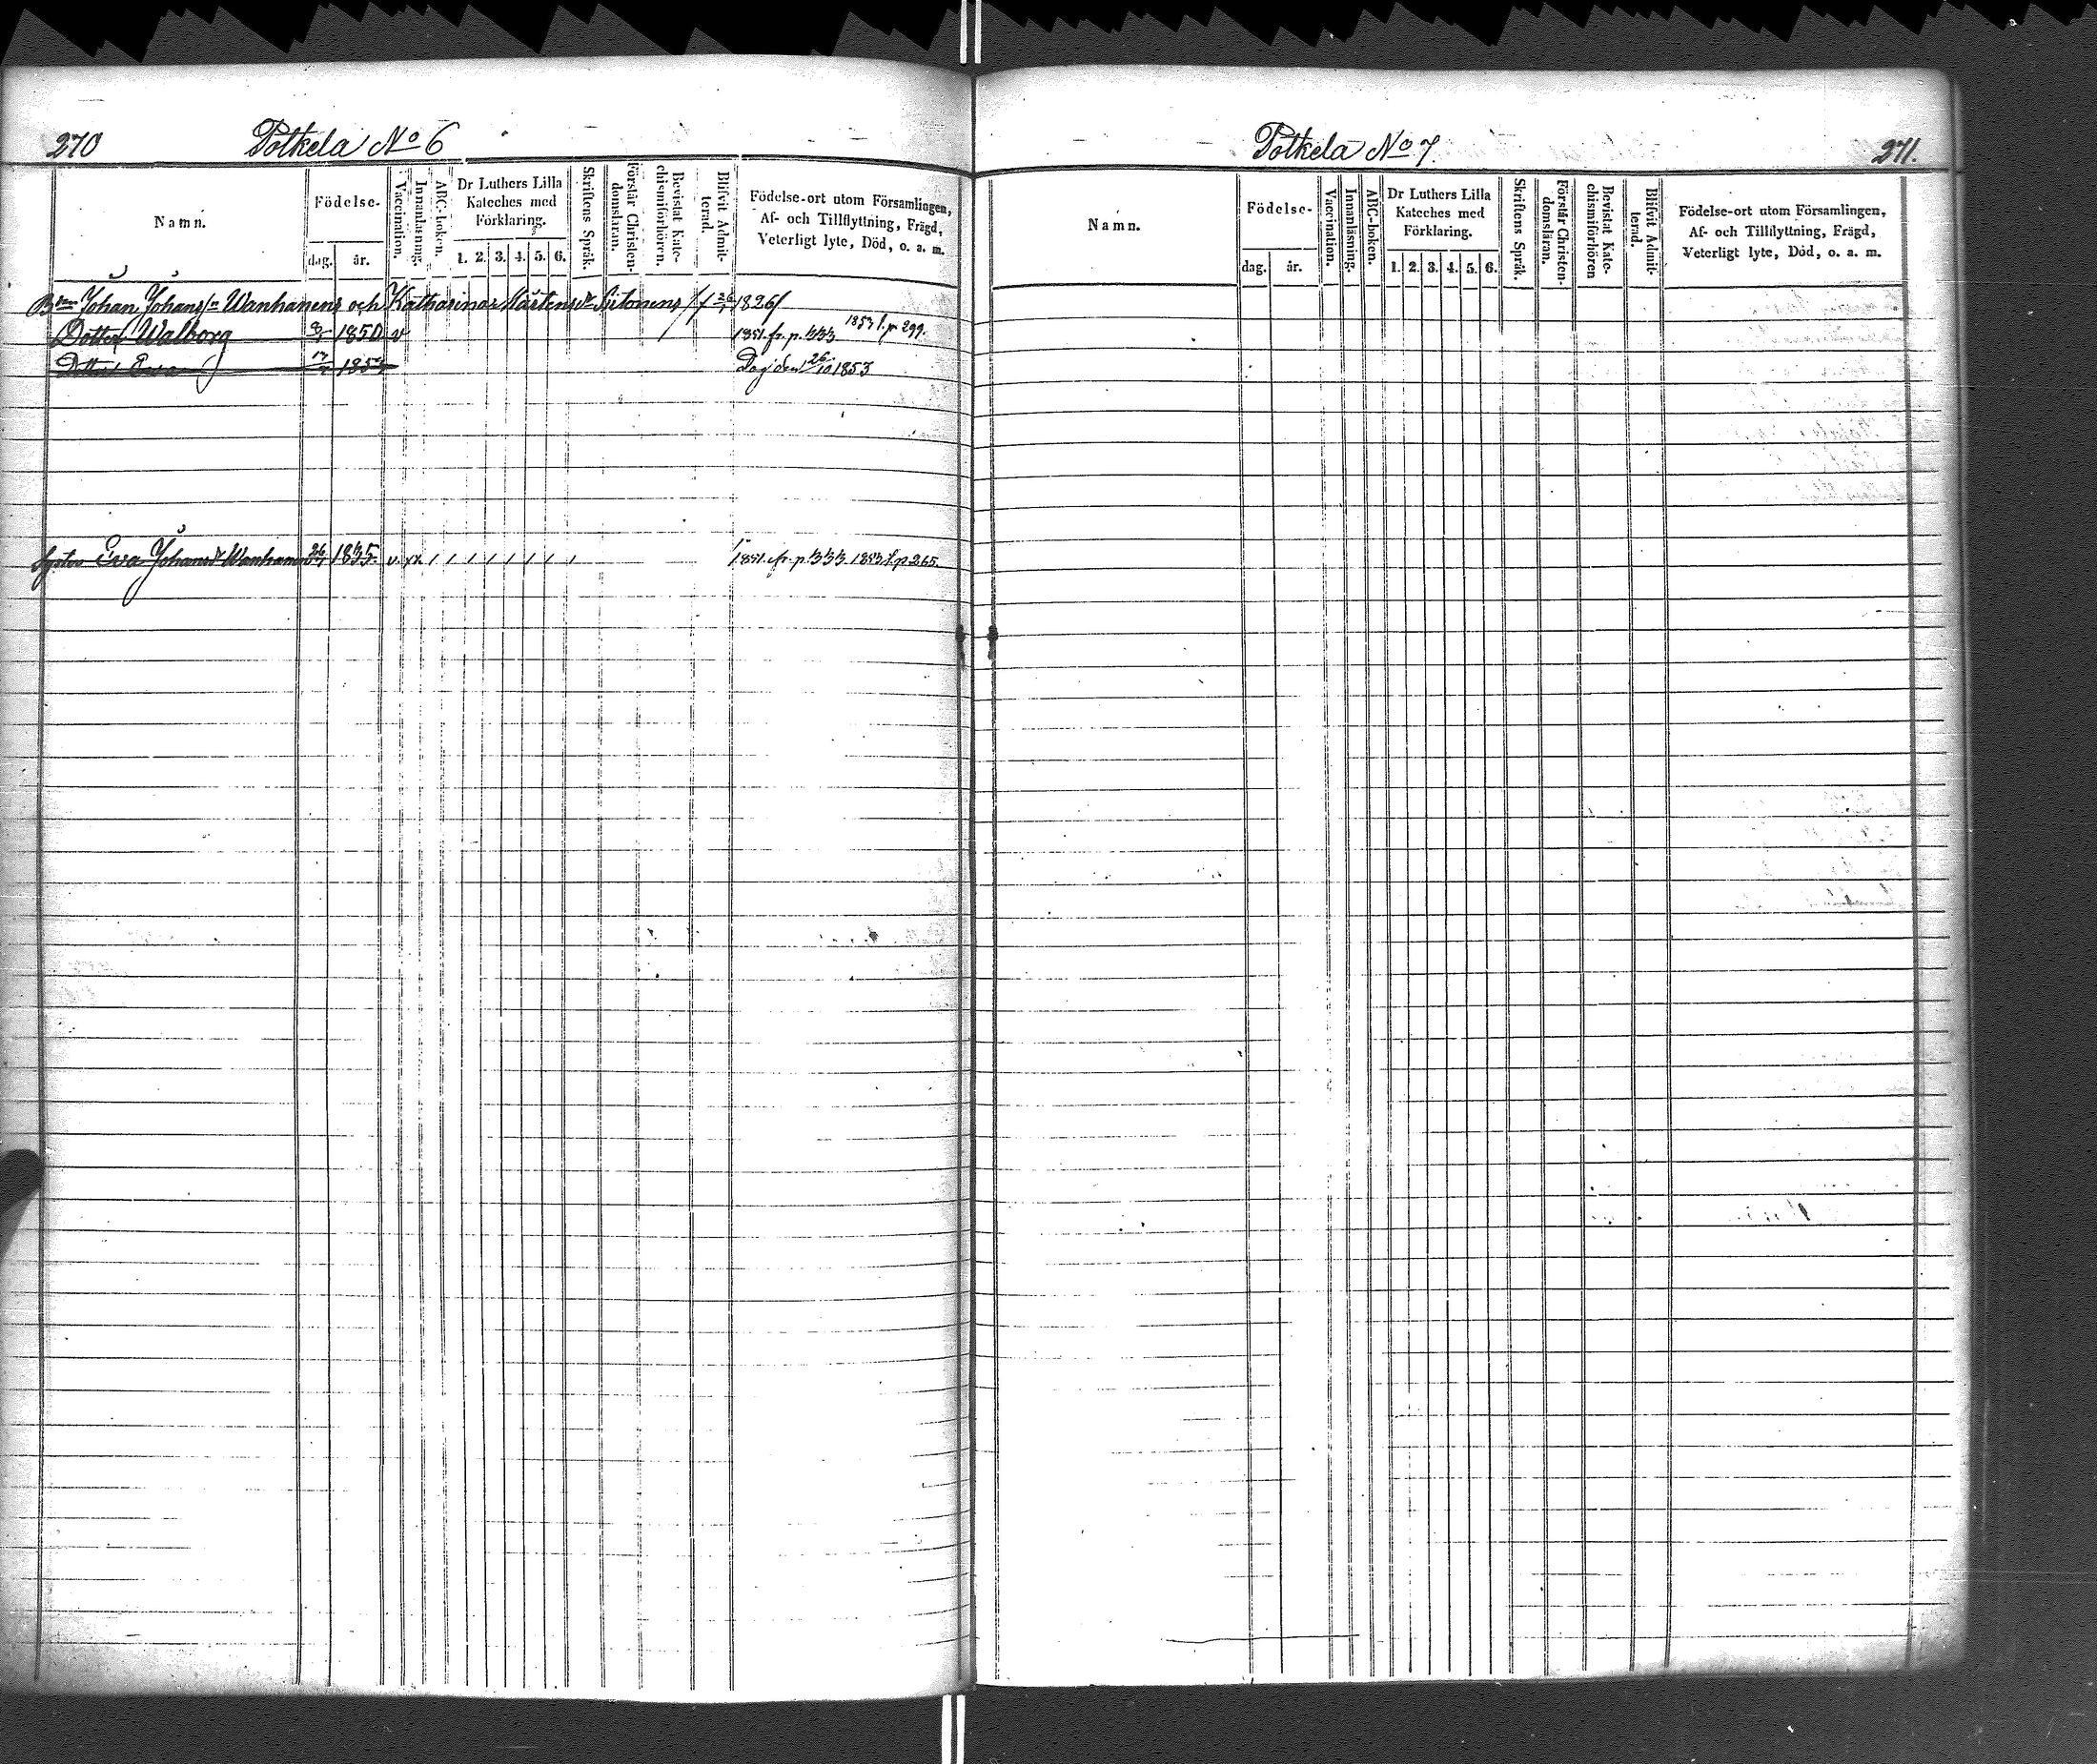 270 Potkela No 6
Namn.
Födelse-
dag. år.
Vaccination.
Innanläsning.
ABC-boken.
Dr Luthers Lilla
Kateches med
Förklaring.
1. 2. 3. 4. 5. 6.
Skriftens Språk.
Förstår Christen-
domsläran.
Bevistat Kate-
chismiförhören.
Blifvit Admit-
terad.
Födelse-ort utom Församlingen,
Af- och Tillflyttning, Frägd,
Veterligt lyte, Död, o. a. m.
Johan Johans Wanhanens och Katharina Mårtensdr 1826
Dotter Walborg 1850 v 1851. fr. p. 333 1853 t. p 299.
Dotter Ewa Dog den 26/10 1853
Syster Ewa Johansdr Wanhanen 1835 v. xx / / / / / / / / 1851. fr. p. 333. 1853 t. p 265.
Potkela No 7. 271.
Namn.
Födelse-
dag. år.
Vaccination.
Innanläsning.
ABC-boken.
Dr Luthers Lilla
Kateches med
Förklaring.
1. 2. 3. 4. 5. 6.
Skriftens Språk.
Förstår Christen-
domsläran.
Bevistat Kate-
chismiförhören
Blifvit Admit-
terad.
Födelse-ort utom Församlingen,
Af- och Tillflyttning, Frägd,
Veterligt lyte, Död, o. a. m.